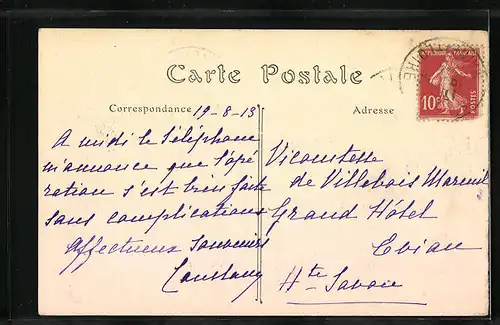 Carte Postale
Correspondance
19-8-13
A midi le Téléphone
m'annonce que l'opé
ration s'est bien faite
sans complications
Affectueux Souvenirs
Adresse
Vicomtesse
de Villebois Mareuil
Grand Hôtel
Evian
Hte Savoie
10c
POSTES